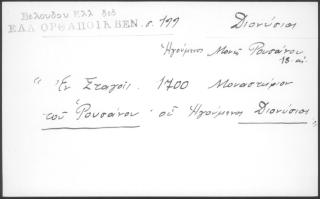 Βελούδου Ελλ δοδ
ΕΛΛ ΟΡΘΑΠΟΙΑ ΒΕΝ. σ. 199 Διονύσιος
Ἡγούμενος Μονῆς Ρουσάνου
18 αἰ
"Ἐν Σταγοῖς 1700 Μοναστήριον
τοῦ Ρουσάνου οὗ Ἡγούμενος Διονύσιος